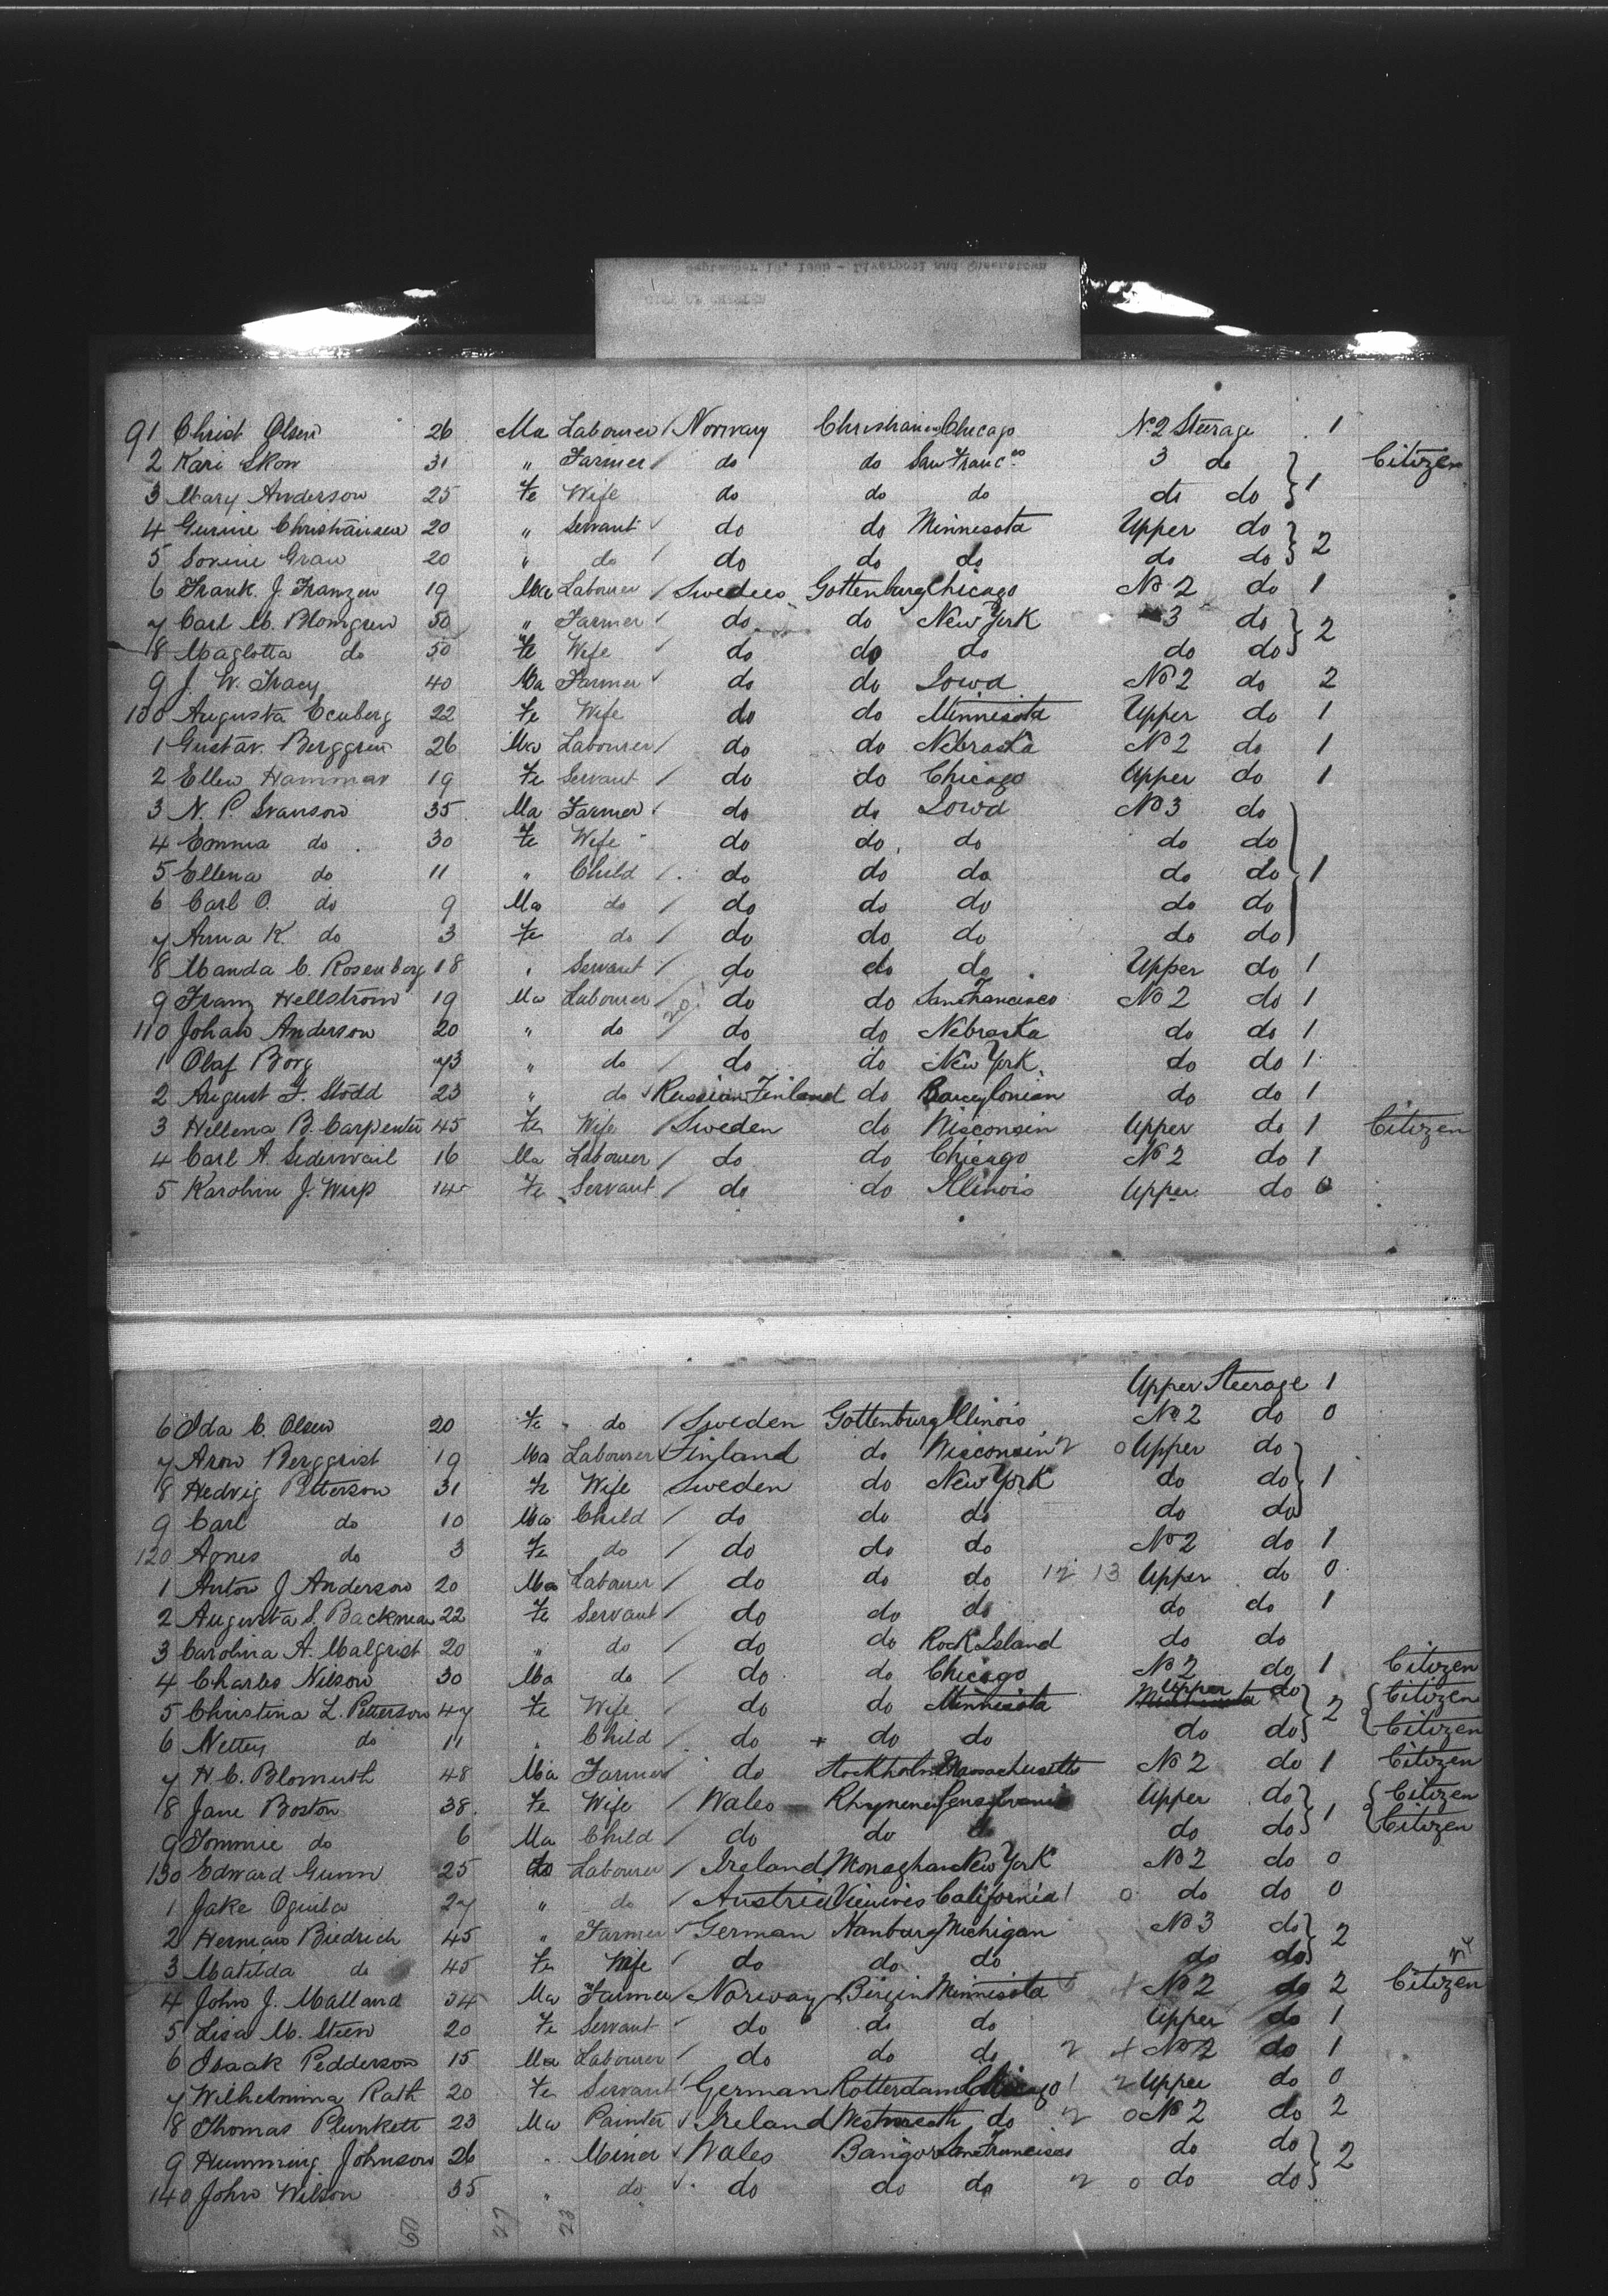 September 10, 1900 - Liverpool and Queenstown
91 Christ Olsen 26 Ma Labourer / Norway Christiania Chicago No 2 Steerage 1
2 Kari Skow 31 " Farmer / do do San Franc.co 3 do Citizen
3 Mary Anderson 25 Fe Wife do do do do do } 1
4 Gurine Christiansen 20 " Servant do do Minnesota Upper do
5 Sorine Grau 20 " do / do do do do do } 2
6 Frank. J. Franzen 19 Ma Labourer / Swedes Gottenburg Chicago No 2 do 1
7 Carl M. Blomgren 50 " Farmer / do do New York 3 do
8 Maglotta do 50 Fe Wife / do do do do do } 2
9 J. W. Tracy 40 Ma Farmer do do Iowa No 2 do 2
100 Augusta Ecuberg 22 Fe Wife do do Minnesota Upper do 1
1 Gustav. Berggren 26 Ma Labourer / do do Nebraska No 2 do 1
2 Ellen Hammar 19 Fe Servant / do do Chicago Upper do 1
3 N. P. Swanson 35 Ma Farmer / do do Iowa No 3 do
4 Emma do 30 Fe Wife do do do do do
5 Ellena do 11 " Child / do do do do do } 1
6 Carl O. do 9 Ma do / do do do do do
7 Anna K. do 3 Fe do / do do do do do
8 Manda C. Rosenborg 18 " Servant / do do do Upper do 1
9 Franz Hellstrom 19 Ma Labourer / do do San Francisco No 2 do 1
110 Johan Anderson 20 " do / do do Nebraska do do 1
1 Olaf Borg 43 " do / do do New York do do 1
2 August F. Stodd 23 " do Russian Finland do do do 1
3 Hellena B. Carpenter 45 Fe Wife / Sweden do Wisconsin Upper do 1 Citizen
4 Carl A. Sederwail 16 Ma Labourer / do do Chicago No 2 do 1
5 Karoline J. Werp 14 Fe Servant / do do Illinois Upper do 0
Upper Steerage 1
6 Ida C. Olsen 20 Fe do / Sweden Gottenburg Illinois No 2 do 0
7 Aron Berggrist 19 Ma Labourer Finland do Wisconsin 2 0 Upper do
8 Hedvig Petterson 31 Fe Wife Sweden do New York do do } 1
9 Carl do 10 Ma Child / do do do do do
120 Agnes do 3 Fe do / do do do No 2 do 1
1 Anton J Anderson 20 Ma Labourer / do do do 12 13 Upper do 0
2 Augusta S. Backman 22 Fe Servant / do do do do do 1
3 Carolina A. Malgrist 20 " do / do do Rock Island do do
4 Charles Nilson 30 Ma do / do do Chicago No 2 do 1 Citizen
5 Christina L. Petterson 47 Fe Wife do do Minnesota Upper do } 2 { Citizen
6 Nettey do 11 " Child / do + do do do do Citizen
7 H. C. Blomuth 48 Ma Farmer do Stockholm Massachusetts No 2 do 1 Citizen
8 Jane Boston 38 Fe Wife / Wales Upper do { Citizen
9 Tommie do 6 Ma Child / do do do do do } 1 Citizen
130 Edward Gunn 25 do Labourer / Ireland Monaghan New York No 2 do 0
1 Jake 27 " do / Austria California 1 0 do do 0
2 Herman Biedrich 45 " Farmer German Hanburg Michigan No 3 do } 2
3 Matilda do 45 Fe Wife / do do do do do
4 John J. Malland 34 Ma Farmer Norway Birgin Minnisota + No 2 do 2 Citizen
5 Lisa M. Steen 20 Fe Servant do do do Upper do 1
6 Isaak Pedderson 15 Ma Labourer / do do do 2 + No 2 do 1
7 Wilhelmina Rath 20 Fe Servant German Rotterdam Chicago 1 2 Upper do 0
8 Thomas Plunkett 23 Ma Painter Ireland Westmeath do 2 0 No 2 do 2
9 Humming Johnson 26 " Miner Wales Bangor San Francisco do do } 2
140 John Wilson 35 " do do do do 2 0 do do
60 27 23